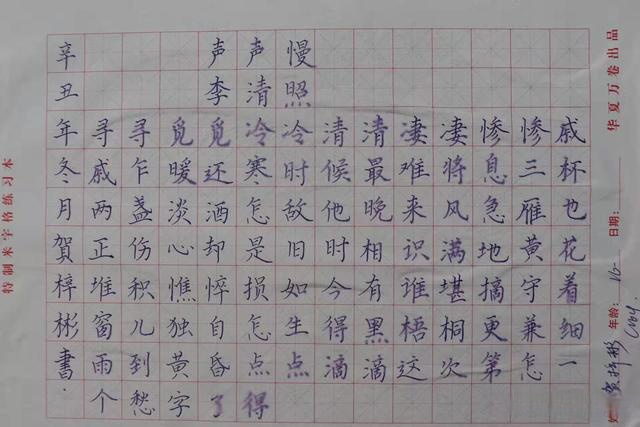 声声慢
李清照
寻寻觅觅冷冷清清凄凄惨惨戚
戚乍暖还寒时候最难将息三杯
两盏淡酒怎敌他晚来风急雁也
正伤心却是旧时相识满地黄花
堆积憔悴损如今有谁堪摘守着
窗儿独自怎生得黑梧桐更兼细
雨到黄昏点点滴滴这次第怎一
个愁字了得
辛丑年冬月賀梓彬書
特制米字格练习本
华夏万卷出品
日期:
年龄: